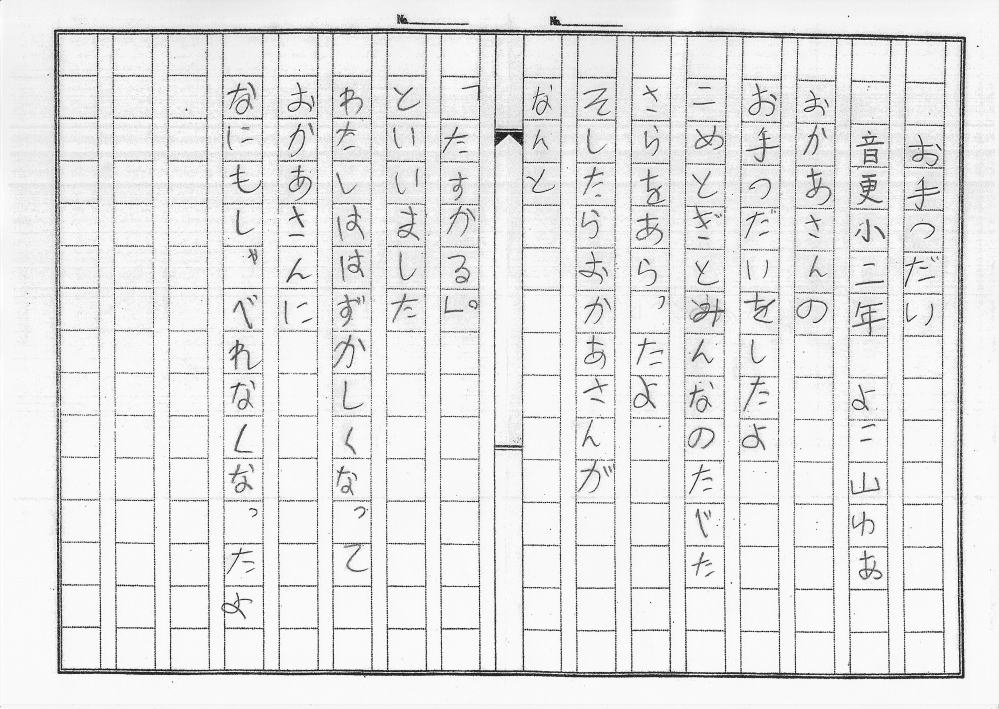 №
№
お手つだい
音更小二年 よこ山ゆあ
おかあさんの
お手つだいをしたよ
こめとぎとみんなのたべた
さらをあらったよ
そしたらおかあさんが
なんと
「たすかる」。
といいました
わたしははずかしくなって
おかあさんに
なにもしゃべれなくなったよ